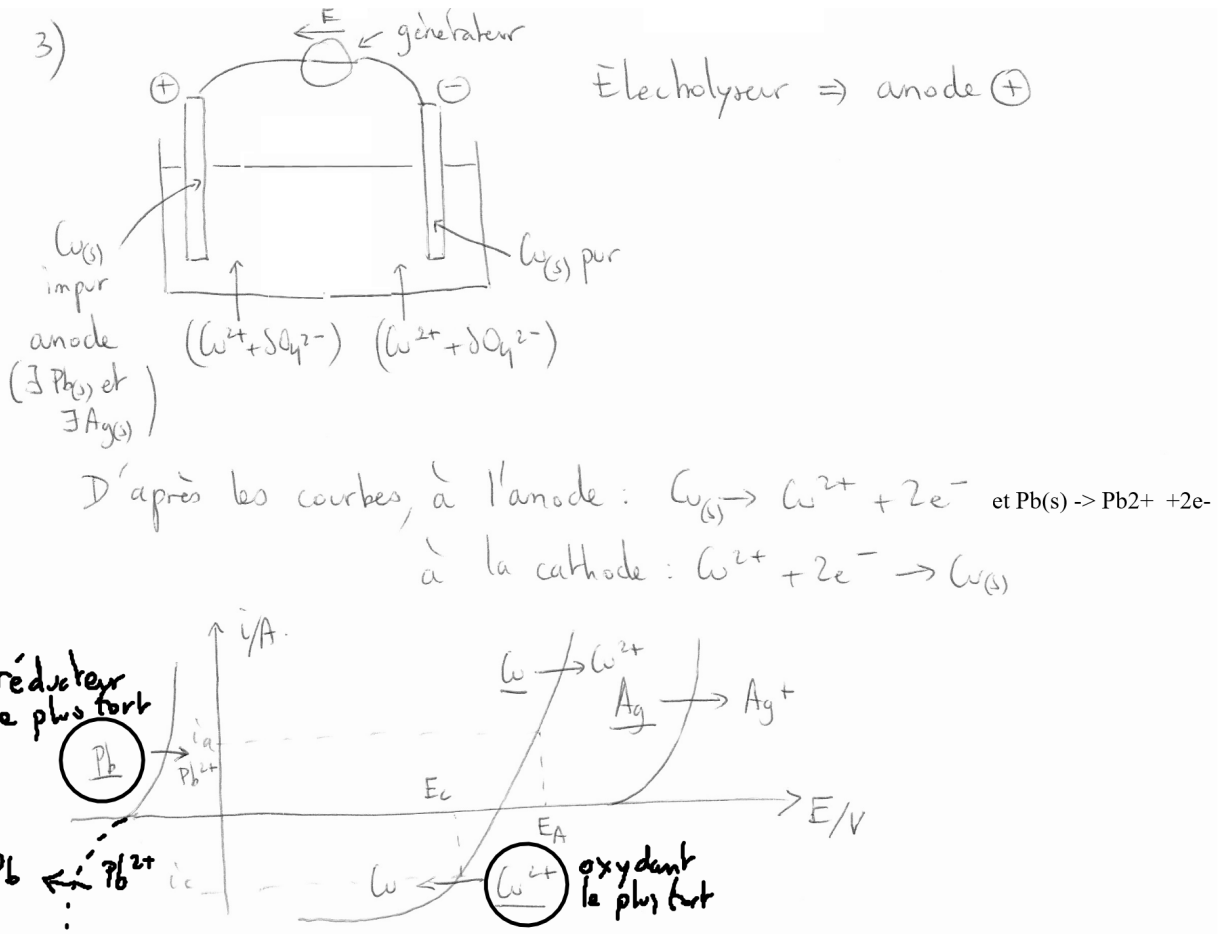 3)
E
générateur
⊕
⊖
Electrolyseur ⇒ anode ⊕
Cu(s)
impur
anode
(∃ Pb(s) et
∃ Ag(s))
Cu(s) pur
(Cu²⁺ + SO₄²⁻) (Cu²⁺ + SO₄²⁻)
D'après les courbes, à l'anode : Cu(s) → Cu²⁺ + 2e⁻ et Pb(s) -> Pb2+ +2e-
à la cathode : Cu²⁺ + 2e⁻ → Cu(s)
i/A.
réducteur
le plus fort
Pb → Pb²⁺
ia
Cu → Cu²⁺
Ag → Ag⁺
Ec
EA
E/V
Pb ← Pb²⁺
ic
Cu ← Cu²⁺
oxydant
le plus fort